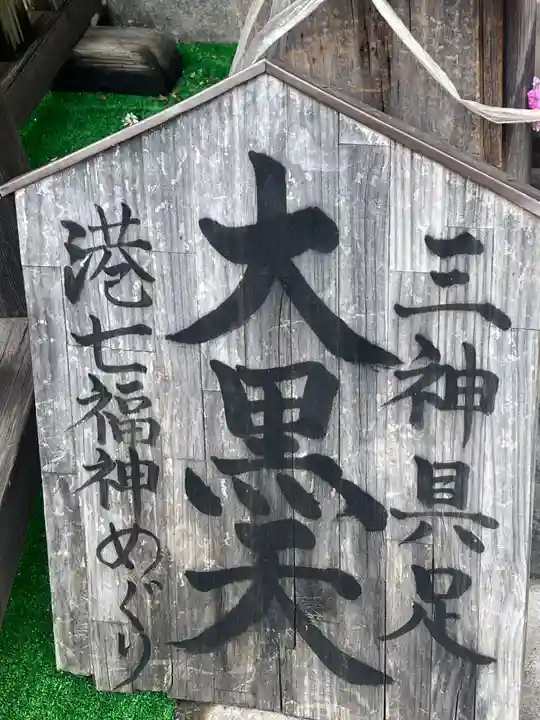 三神具足
大黒天
港七福神めぐり